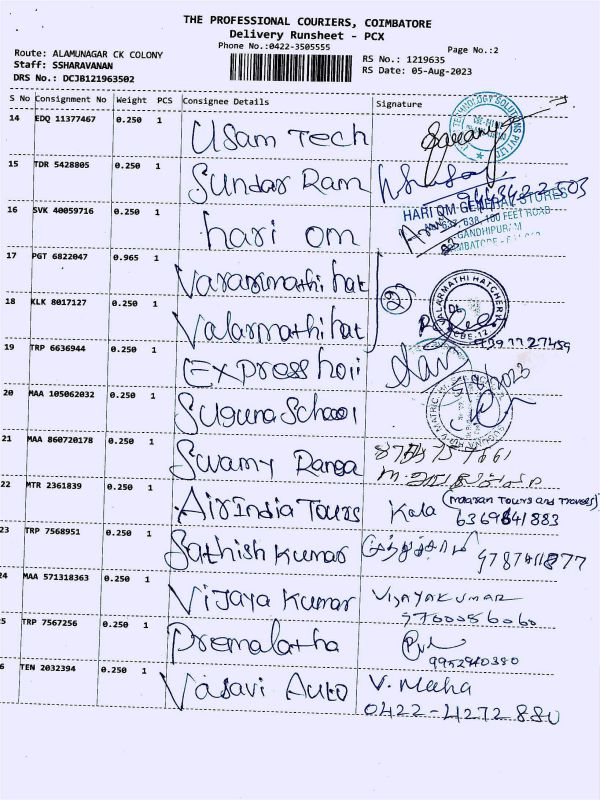 THE PROFESSIONAL COURIERS, COIMBATORE
Delivery Runsheet - PCX
Phone No.:0422-3505555
Page No.:2
Route: ALAMUNAGAR CK COLONY
Staff: SSHARAVANAN
DRS No.: DCJB121963502
RS No.: 1219635
RS Date: 05-Aug-2023
S No Consignment No Weight PCS Consignee Details Signature
14 EDQ 11377467 0.250 1 Usam Tech
15 TDR 5428805 0.250 1 Sundar Ram
16 SVK 40059716 0.250 1 hari om
HARI OM GENERAL STORES
100 FEET ROAD
GANDHIPURAM
17 PGT 6822047 0.965 1 Varanmathi hat
18 KLK 8017127 0.250 1 Valarmathi hat
VALARMATHI HATCHERY
CBE-12
19 TRP 6636944 0.250 1 Express hoii
20 MAA 105062032 0.250 1 Suguna School
21 MAA 860720178 0.250 1 Swamy Ranga
22 MTR 2361839 0.250 1 Air India Tours Kala (maaran Tours and Travels)
6369841883
23 TRP 7568951 0.250 1 Sathish Kumar
24 MAA 571318363 0.250 1 Vijaya Kumar Vijayakumar
9700056060
5 TRP 7567256 0.250 1 Premalatha
9952940380
6 TEN 2032394 0.250 1 Vasavi Auto V. Meeha
0422-4272880